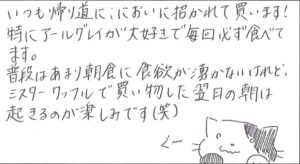 いつも帰り道に、においに招かれて買います！
特にアールグレイが大好きで毎回必ず食べて
ます。
普段はあまり朝食に食欲が湧かないけれど、
ミスターワッフルで買い物した翌日の朝は
起きるのが楽しみです(笑)
ぐ〜